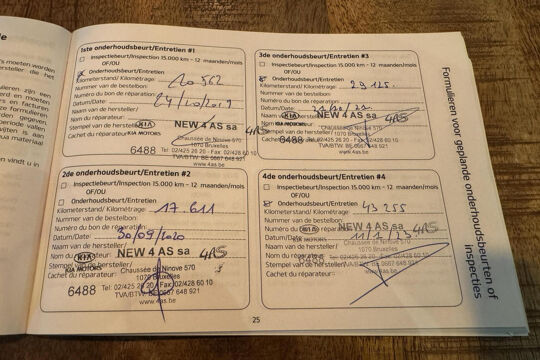 1ste onderhoudsbeurt/Entretien #1
Inspectiebeurt/Inspection 15.000 km - 12 maanden/mois
OF/OU
Onderhoudsbeurt/Entretien
Kilometerstand/ Kilométrage: 10 562
Nummer van de bestelbon:
Numéro du bon de réparation:
Datum/Date: 24/10/2019
Naam van de hersteller/
Nom du réparateur: KIA NEW 4 AS sa 4AS
Stempel van de hersteller/ KIA MOTORS
Cachet du réparateur: Chaussée de Ninove 570
1070 Bruxelles
6488 Tel: 02/425 26 20 - Fax 02/428 60 10
TVA/BTW: BE 0667 648 921
www.4as.be
2de onderhoudsbeurt/Entretien #2
Inspectiebeurt/Inspection 15.000 km - 12 maanden/mois
OF/OU
Onderhoudsbeurt/Entretien
Kilometerstand/ Kilométrage: 17.611
Nummer van de bestelbon:
Numéro du bon de réparation:
Datum/Date: 30/09/2020
Naam van de hersteller/
Nom du réparateur: KIA NEW 4 AS sa 4AS
Stempel van de hersteller/ KIA MOTORS
Cachet du réparateur: Chaussée de Ninove 570
1070 Bruxelles
6488 Tel: 02/425 26 20 - Fax 02/428 60 10
TVA/BTW: BE 0667 648 921
www.4as.be
3de onderhoudsbeurt/Entretien #3
Inspectiebeurt/Inspection 15.000 km - 12 maanden/mois
OF/OU
Onderhoudsbeurt/Entretien
Kilometerstand/ Kilométrage: 29 125.
Nummer van de bestelbon:
Numéro du bon de réparation:
Datum/Date:
Naam van de hersteller/ KIA NEW 4 AS sa 4AS
Nom du réparateur: KIA MOTORS
Stempel van de hersteller/ Chaussée de Ninove 570
Cachet du réparateur: 1070 Bruxelles
6488 Tel: 02/425 26 20 - Fax 02/428 60 10
TVA/BTW: BE 0667 648 921
www.4as.be
4de onderhoudsbeurt/Entretien #4
Inspectiebeurt/Inspection 15.000 km - 12 maanden/mois
OF/OU
Onderhoudsbeurt/Entretien
Kilometerstand/ Kilométrage: 43 255
Nummer van de bestelbon:
Numéro du bon de réparation: NEW 4 AS sa 4AS
Datum/Date:
Naam van de hersteller/ Chaussée de Ninove 570
Nom du réparateur: 1070 Bruxelles
Stempel van de hersteller/
Cachet du réparateur: www.4as.be
Formulieren voor geplande onderhoudsbeurten of
inspecties
25